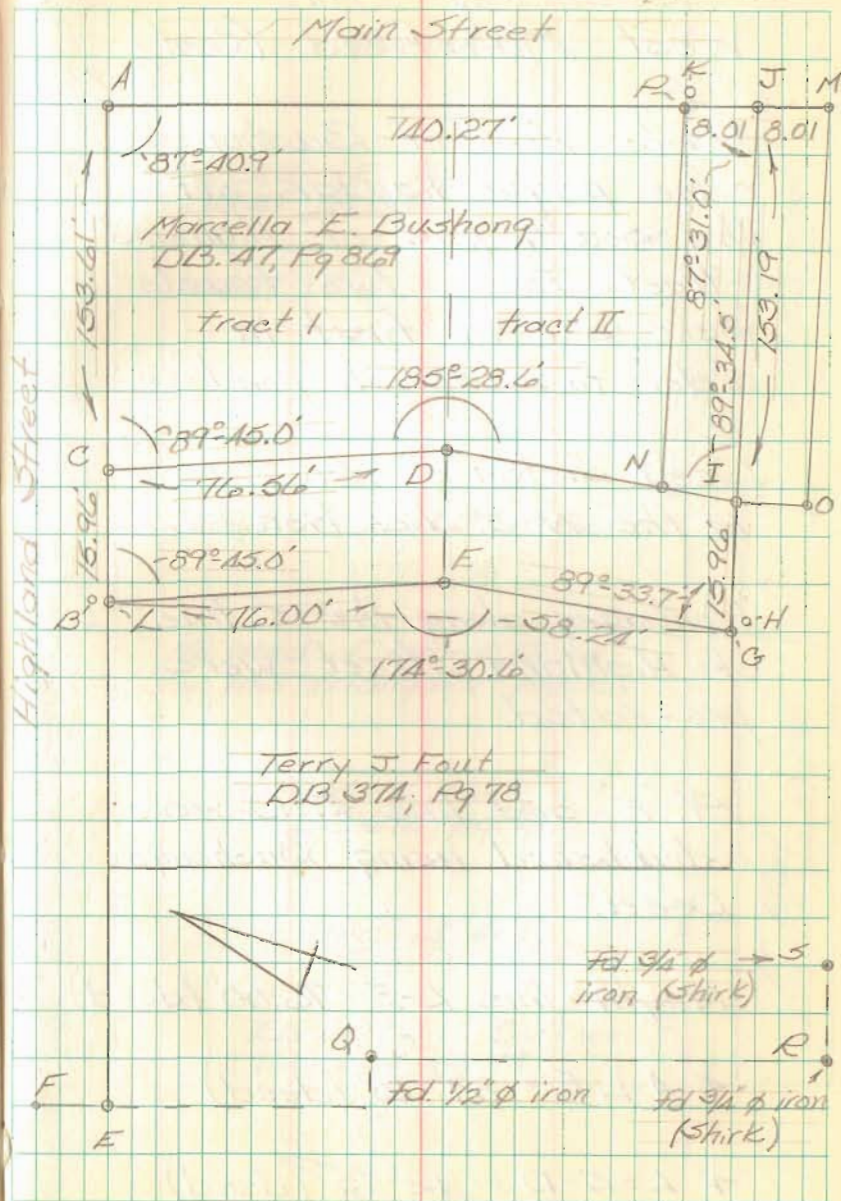 Main Street
A
P
K
J
M
140.27'
8.01
8.01
87°-40.9'
153.61'
Marcella E. Bushong
DB. 47, Pg 869
tract I
tract II
87°-31.0'
89°-34.5'
153.19'
185°-28.6'
Highland Street
89°-45.0'
C
76.56'
D
N
I
O
15.96'
89°-45.0'
E
89°-33.7'
15.96'
B
L
76.00'
58.24'
H
G
174°-30.6'
Terry J Fout
D.B. 374; Pg 78
Fd. 3/4 ø → S
iron (Shirk)
Q
R
F
Fd. 1/2" ø iron
Fd 3/4" ø iron
(Shirk)
E